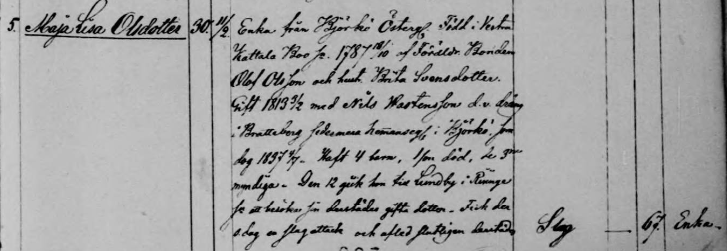 5. Maja Lisa Olsdotter 30. 11/9 Enka från Björkö Österg. Född i Vestra
Kattala Boo s. 1787 18/10 af Föräldr. Bonden
Olof Olsson och hust. Brita Svensdotter.
Gift 1813 3/2 med Nils Hastensson d.v. dräng
i Bratteberg sedermera hemmanseg. i Björkö, som
dog 1837 - Haft 4 barn, 1 son död, de 3ne
myndiga - Den 12 gick hon till Lundby i
s. att besöka sin derstädes gifta dotter - Fick der
s. dag en slagattack och afled slutligen derstädes
Slag — 67. Enka.